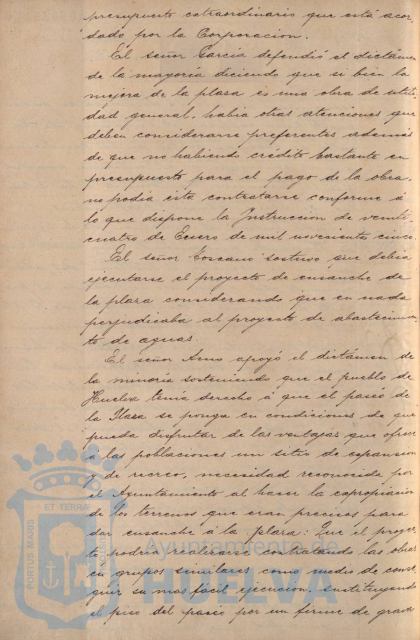 presupuesto extraordinario que está acor-
dado por la Corporacion.
El señor García defendió el dictámen
de la mayoría diciendo que si bien la
mejora de la plaza es una obra de utili-
dad general, habia otras atenciones que
deben considerarse preferentes además
de que no habiendo crédito bastante en
presupuesto para el pago de la obra,
no podia ésta contratarse conforme á
lo que dispone la Instruccion de veinti-
cuatro de Enero de mil novecientos cinco.
El señor Toscano sostuvo que debia
ejecutarse el proyecto de ensanche de
la plaza considerando que en nada
perjudicaba al proyecto de abastecimien-
to de aguas.
El señor apoyó el dictámen de
la minoria sosteniendo que el pueblo de
Huelva tenia derecho á que el paseo de
la Plaza se ponga en condiciones de que
pueda disfrutar de las ventajas que ofrece
á las poblaciones un sitio de expansion
y de recreo, necesidad reconocida por
el Ayuntamiento al hacer la expropiacion
de los terrenos que eran precisos para
dar ensanche á la plaza: Que el proyec-
to podria realizarse contratando las obras
en grupos similares como medio de conse-
guir su mas fácil ejecucion, sustituyendo
el piso del paseo por un firme de grava
PORTUS MARIS
ET TERRAE
Ayuntamiento de
HUELVA